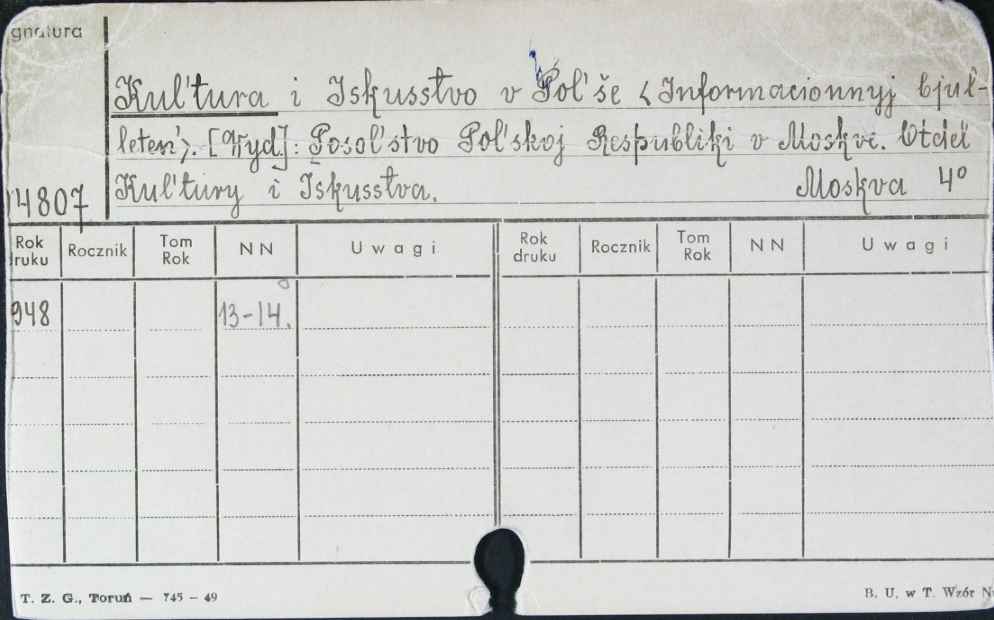 gnatura
Kul'tura i Iskusstvo v Pol'še <Informacionnyj bjul-
leten'>. [Wyd]: Posol'stvo Pol'skoj Respubliki v Moskve. Otdel
14807 Kul'tury i Iskusstva. Moskva 4°
Rok druku Rocznik Tom Rok NN Uwagi Rok druku Rocznik Tom Rok NN Uwagi
948 13-14.
T. Z. G., Toruń — 745 – 49 B. U. w T. Wzór N